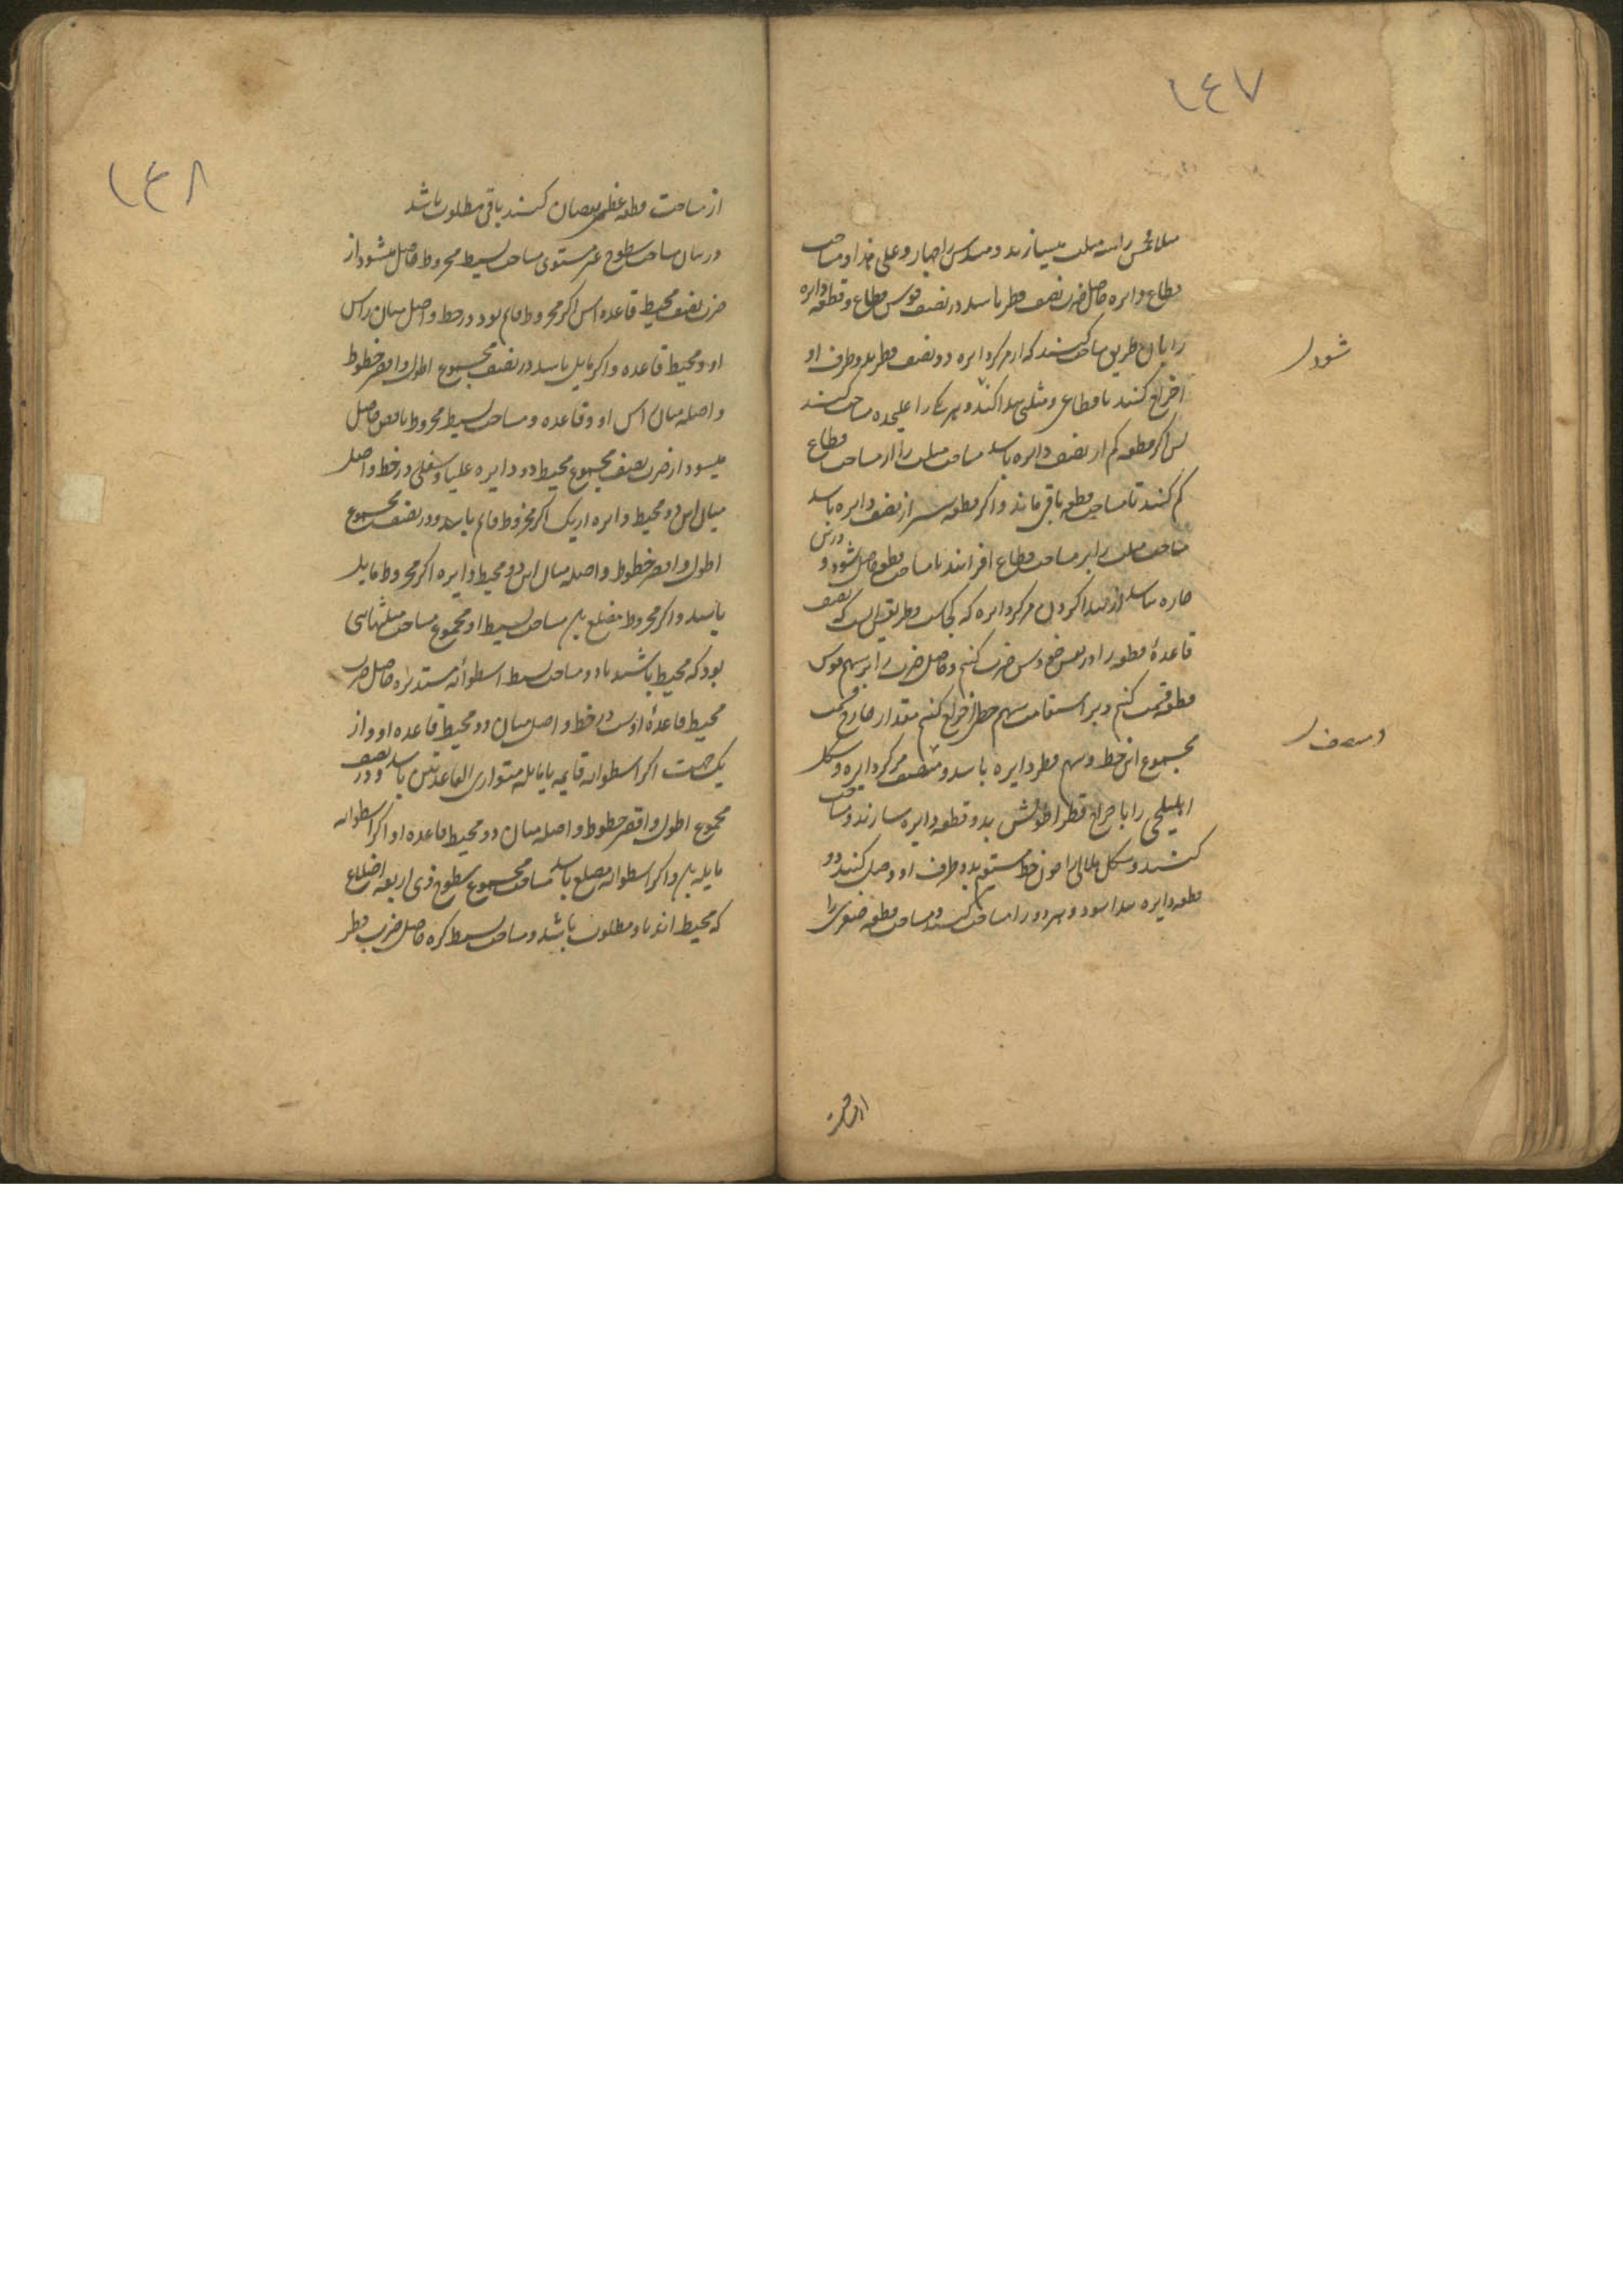 ١٤٧
مثلا مخمس را سه مثلث میسازند و مسدس را چهار و علی هذا و مساحت
قطاع دایره حاصل ضرب نصف قطر باشد در نصف قوس قطاع و قطعه دایره
را بآن طریق مساحت کنند که از مرکز دایره دو نصف قطر بدو طرف او
اخراج کنند تا قطاعی و مثلثی پیدا کند و هر یک را علیحده مساحت کنند
پس اگر قطعه کم از نصف دایره باشد مساحت مثلث را از مساحت قطاع
کم کنند تا مساحت قطعه باقی ماند و اگر قطعه بیشتر از نصف دایره باشد
مساحت مثلث را بر مساحت قطاع افزایند تا مساحت قطعه حاصل شود و درین
چاره نباشد از پیدا کردن مرکز دایره که کجاست و طریقش اینست که نصف
قاعدهٔ قطعه را در نفس خودش ضرب کنیم و حاصل ضرب را بر سهم قوس
قطعه قسمت کنیم و بر استقامت سهم خطی اخراج کنیم مقدار خارج قسمت
مجموع این خط و سهم قطر دایره باشد و منتصف مرکز دایره و شکل
اهلیلجی را باخراج قطر اطولش بدو قطعه دایره سازند و مساحت
کنند و شکل هلالی را چون خط مستقیم بدو طرف او وصل کنند دو
قطعه دایره پیدا شود و هر دو را مساحت کنند و مساحت قطعه صغری را
شود
از مساحت
١٤٨
از مساحت قطعه عظمی نقصان کنند باقی مطلوب باشد
در بیان مساحت سطوح غیر مستوی مساحت بسیط مخروط حاصل میشود از
ضرب نصف محیط قاعده اش اگر مخروط قایم بود در خط واصل میان راس
او و محیط قاعده و اگر مایل باشد در نصف مجموع اطول و اقصر خطوط
واصله میان راس او و قاعده و مساحت بسیط مخروط ناقص حاصل
میشود از ضرب نصف مجموع محیط دو دایره علیا و سفلی در خط واصل
میان این دو محیط دایره از یک اگر مخروط قایم باشد و در نصف مجموع
اطول و اقصر خطوط واصله میان این دو محیط دایره اگر مخروط مایل
باشد و اگر مخروط مضلع بود مساحت بسیط او مجموع مساحت مثلثهائی
بود که محیط باشند باو و مساحت بسیط اسطوانه مستدیره حاصل ضرب
محیط قاعدهٔ اوست در خط واصل میان دو محیط قاعده او و از
یک جهت اگر اسطوانه قایمه یا مایله متوازی القاعدتین باشد و در نصف
مجموع اطول و اقصر خطوط واصله میان دو محیط قاعده او اگر اسطوانه
مایله بود و اگر اسطوانه مضلع باشد مساحت مجموع سطوح ذی اربعه اضلاع
که محیط اند باو مطلوب باشد و مساحت بسیط کره حاصل ضرب قطر